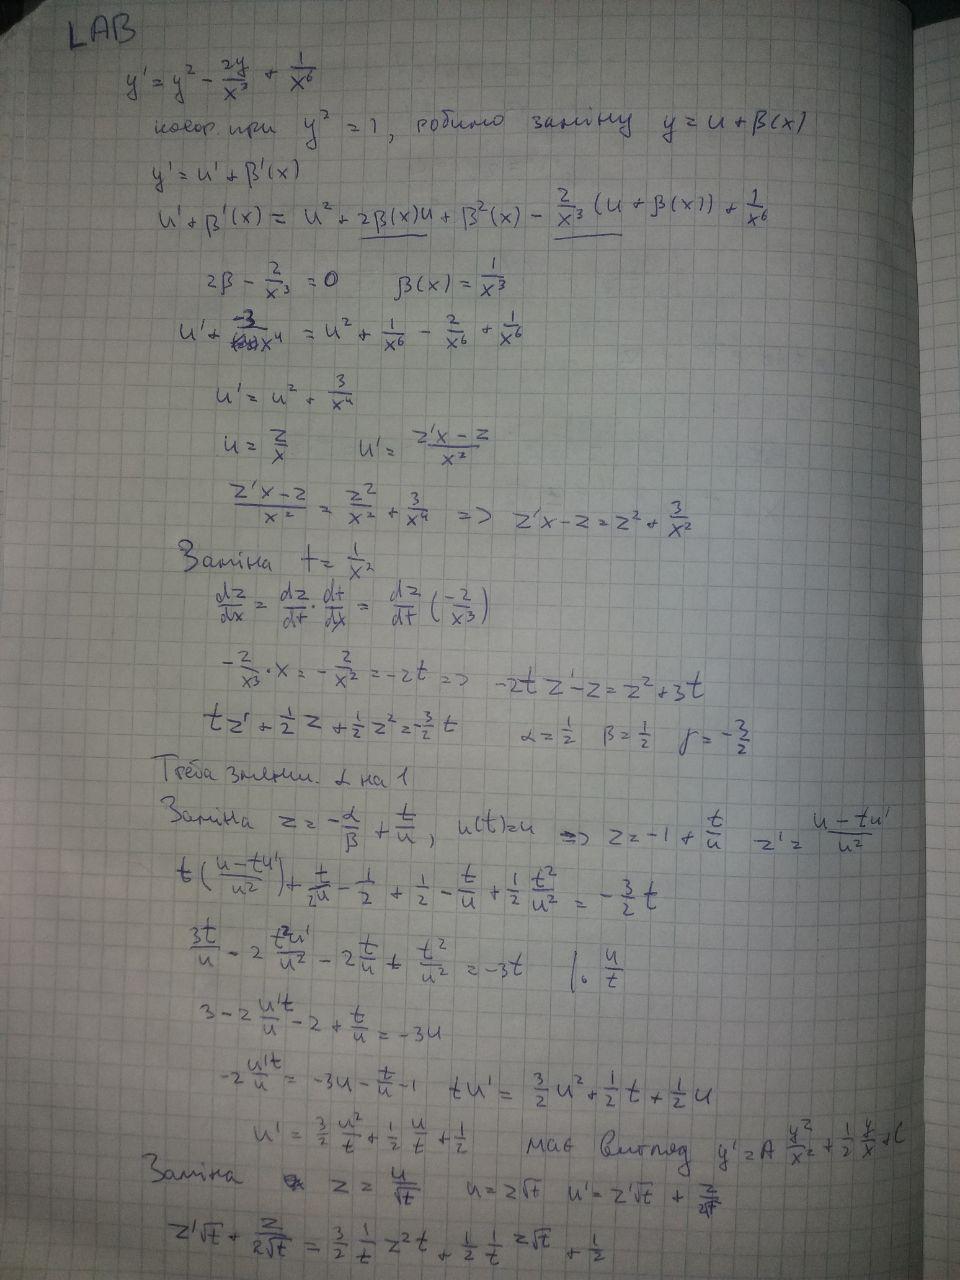 LAB
y' = y² - 2y/x³ + 1/x⁶
при y² = 1, робимо заміну y = u + β(x)
y' = u' + β'(x)
u' + β'(x) = u² + 2β(x)u + β²(x) - 2/x³ (u + β(x)) + 1/x⁶
2β - 2/x³ = 0 β(x) = 1/x³
u' + -3/x⁴ = u² + 1/x⁶ - 2/x⁶ + 1/x⁶
u' = u² + 3/x⁴
u = z/x u' = (z'x - z)/x²
(z'x - z)/x² = z²/x² + 3/x⁴ => z'x - z = z² + 3/x²
Заміна t = 1/x²
dz/dx = dz/dt · dt/dx = dz/dt (-2/x³)
-2/x³ · x = -2/x² = -2t => -2t z' - z = z² + 3t
tz' + 1/2 z + 1/2 z² = -3/2 t α = 1/2 β = 1/2 γ = -3/2
Треба α на 1
Заміна z = -α/β + t/u, u(t) = u => z = -1 + t/u z' = (u - tu')/u²
t((u - tu')/u²) + t/2u - 1/2 + 1/2 - t/u + 1/2 t²/u² = -3/2 t
3t/u - 2 t²u'/u² - 2 t/u + t²/u² = -3t |· u/t
3 - 2 u't/u - 2 + t/u = -3u
-2 u't/u = -3u - t/u - 1 tu' = 3/2 u² + 1/2 t + 1/2 u
u' = 3/2 u²/t + 1/2 u/t + 1/2 має вигляд y' = A y²/x² + 1/2 y/x + C
Заміна z = u/√t u = z√t u' = z'√t + z/2√t
z'√t + z/2√t = 3/2 1/t z²t + 1/2 1/t z√t + 1/2